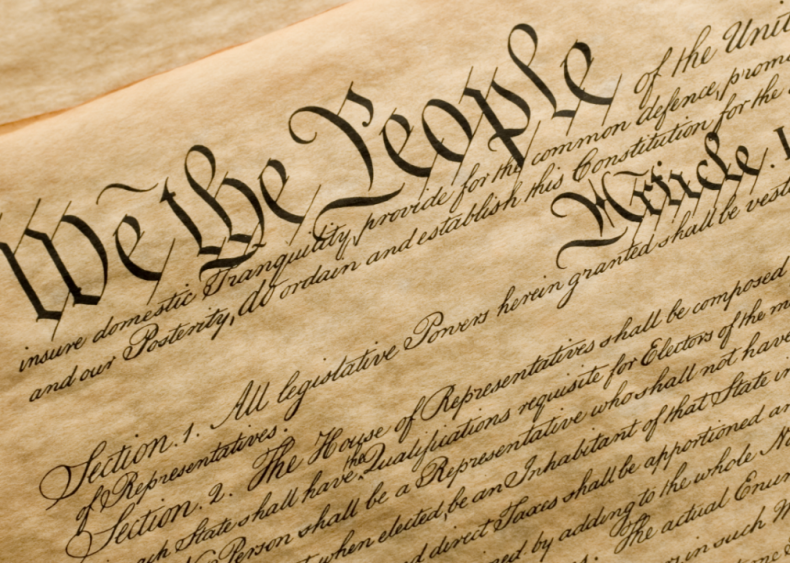 We the People of the Unit
insure domestic Tranquility, provide for the common defence, promo
and our Posterity, do ordain and establish this Constitution for the
Article. I
Section. 1. All legislative Powers herein granted shall be vest
of Representatives.
Section. 2. The House of Representatives shall be composed
ach State shall have the Qualifications requisite for Electors of the m
No Person shall be a Representative who shall not have
t when elected, be an Inhabitant of that State in
d direct Taxes shall be apportioned a
ned by adding to the whole N
The actual Enum
in such M